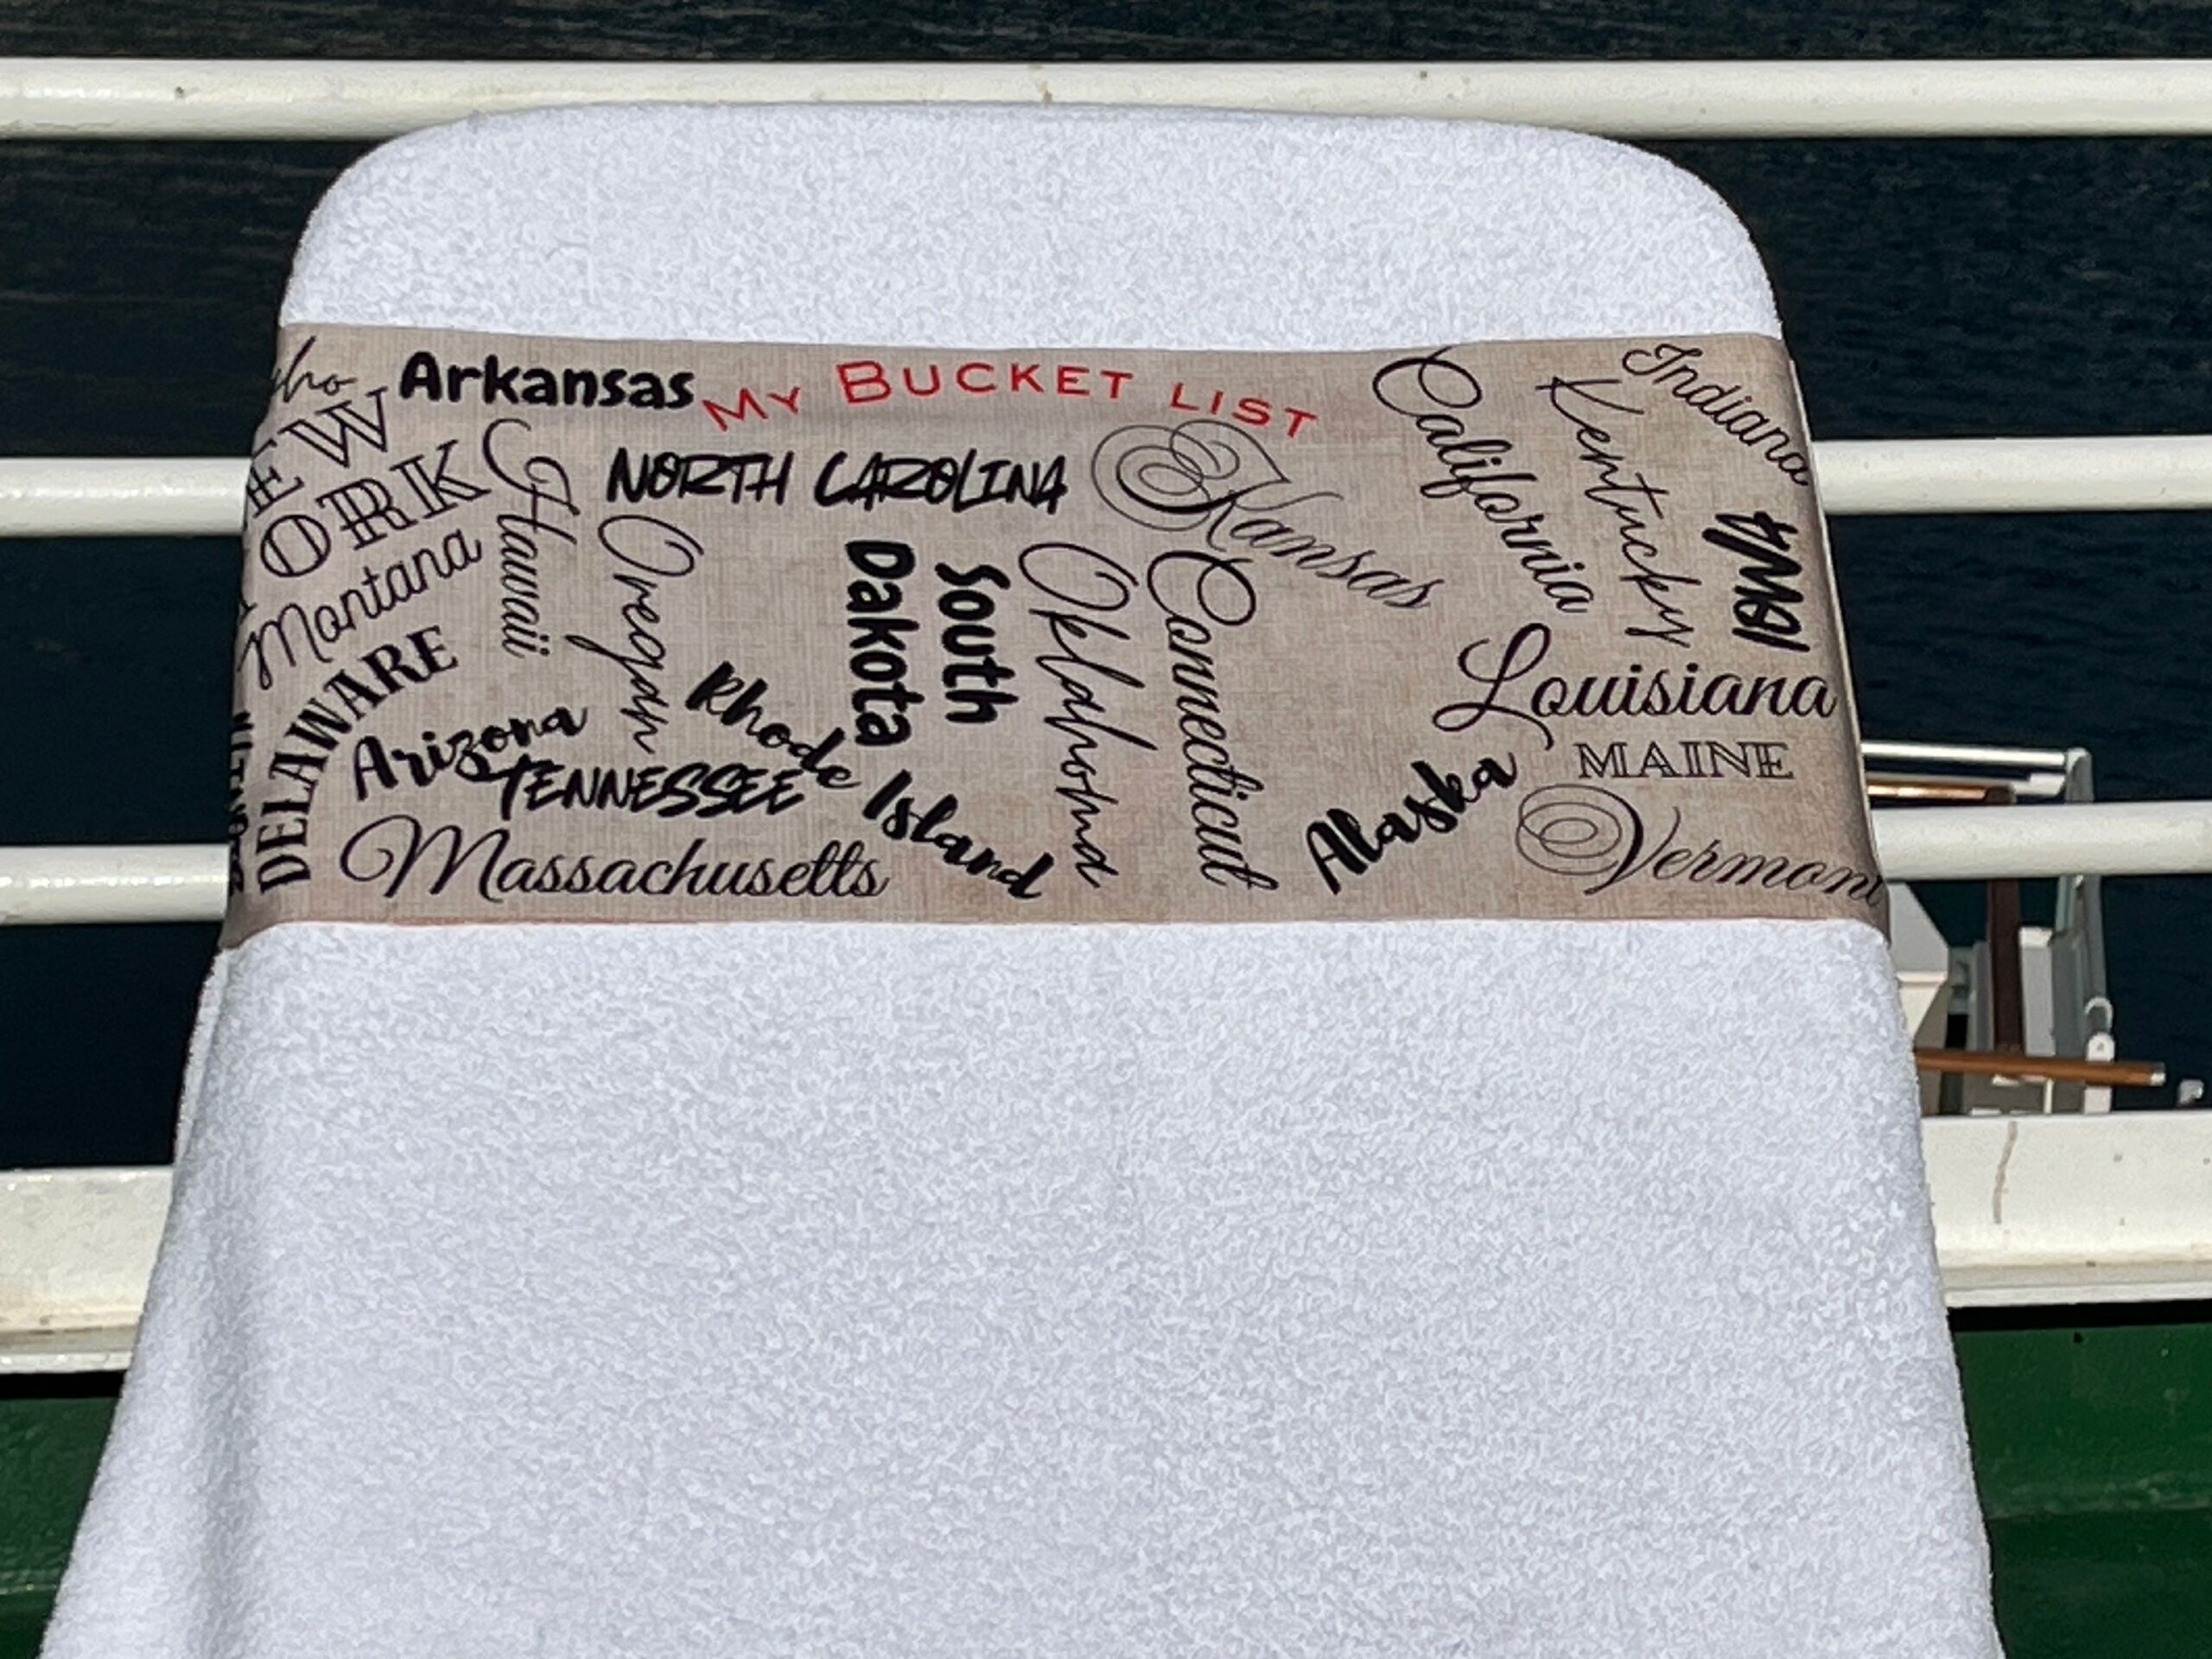 Arkansas
MY BUCKET LIST
California
Indiana
Kentucky
EW
ORK
Hawaii
NORTH CAROLINA
Kansas
Montana
Oregon
South
Dakota
Oklahoma
Connecticut
IOWA
DELAWARE
Arizona
Rhode Island
Louisiana
TENNESSEE
MAINE
Alaska
Massachusetts
Vermont